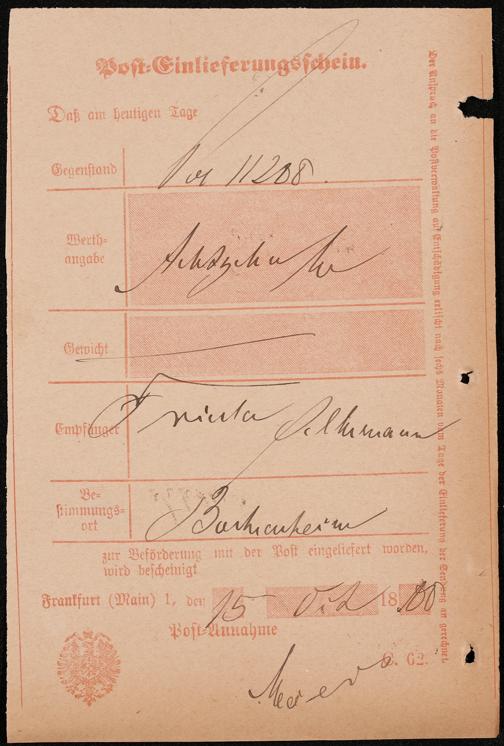 Post-Einlieferungsschein.
Daß am heutigen Tage
Gegenstand
11208.
Werth-
angabe
Achtzehn
Gewicht
Empfänger
Be-
stimmungs-
ort
Bockenheim
zur Beförderung mit der Post eingeliefert worden,
wird bescheinigt
Frankfurt (Main) 1, den 15 Oct 1880
Post-Annahme
C. 62.
Der Anspruch an die Postverwaltung auf Entschädigung erlischt nach sechs Monaten vom Tage der Einlieferung der Sendung an gerechnet.